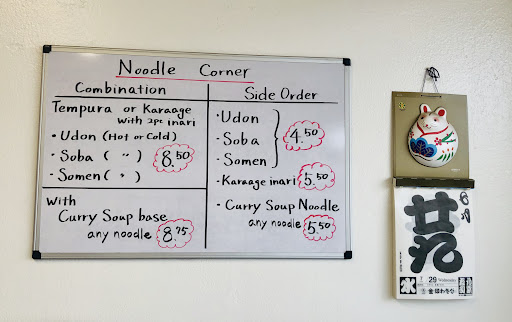 Noodle Corner
Combination
Tempura or Karaage
with 2pc inari
• Udon (Hot or Cold)
• Soba ( " )
• Somen ( " )
8.50
With
Curry Soup base
any noodle 8.75
Side Order
• Udon
• Soba
• Somen
4.50
• Karaage inari 5.50
• Curry Soup Noodle
any noodle 5.50
29 Wednesday
水